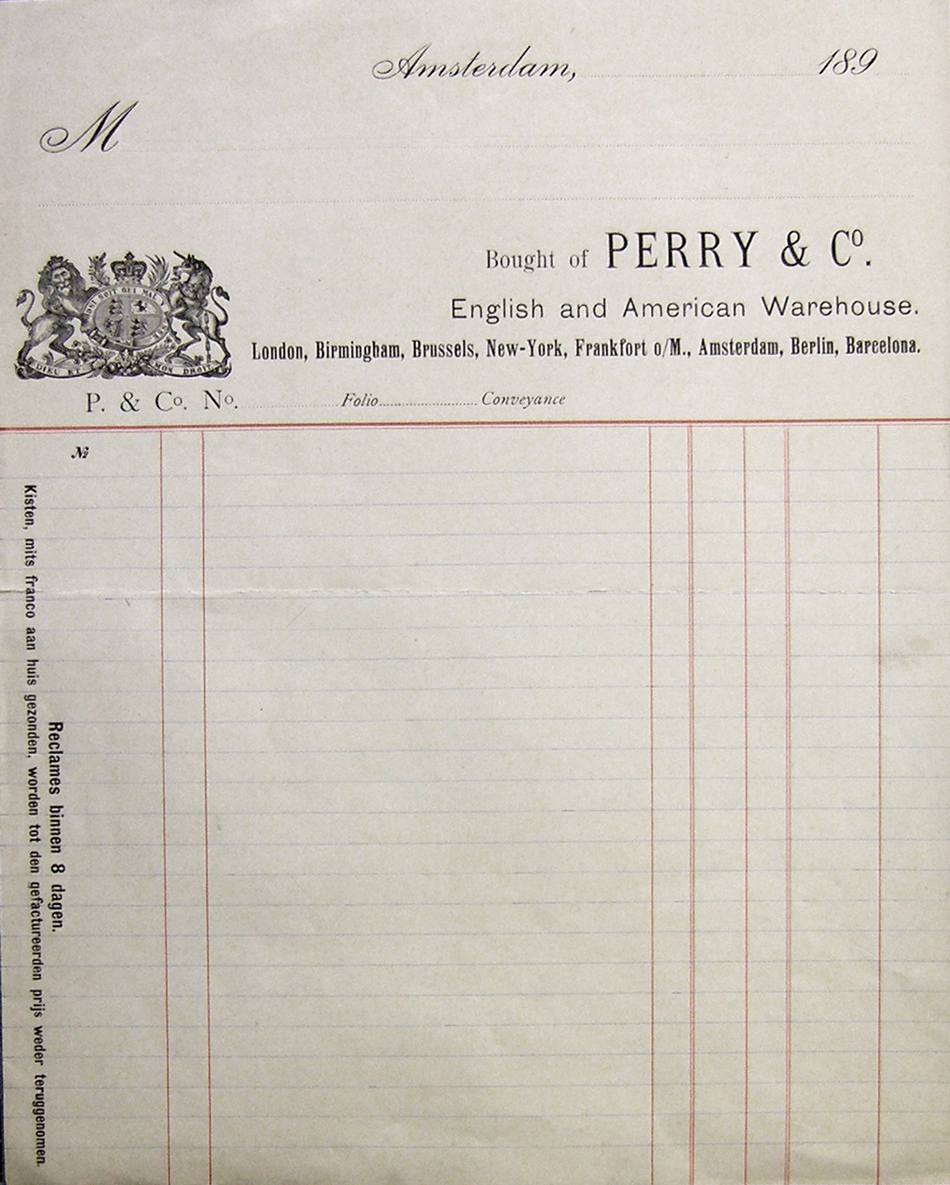 Amsterdam, 189
M
Bought of PERRY & Cº.
English and American Warehouse.
London, Birmingham, Brussels, New-York, Frankfort o/M., Amsterdam, Berlin, Barcelona.
HONI SOIT QUI MAL Y PENSE
DIEU ET MON DROIT
P. & Co. No. Folio Conveyance
№
Reclames binnen 8 dagen.
Kisten, mits franco aan huis gezonden, worden tot den gefactureerden prijs weder teruggenomen.